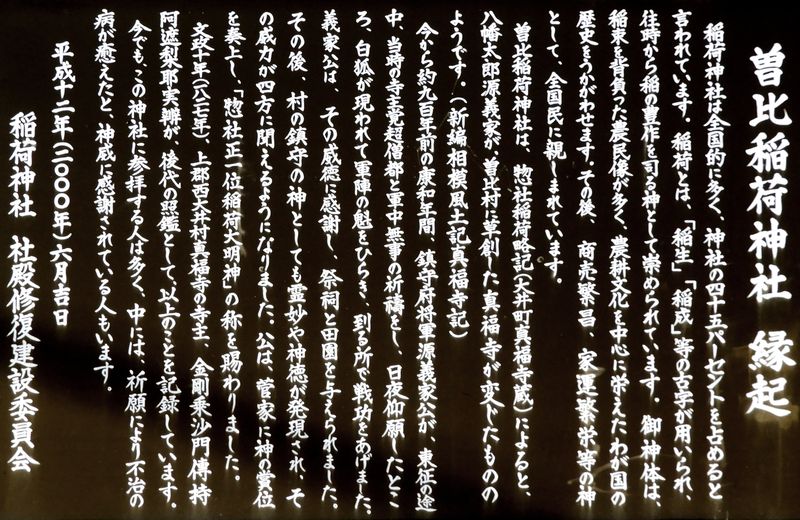 曽比稲荷神社 縁起
稲荷神社は全国的に多く、神社の四十五パーセントを占めると
言われています。稲荷とは、「稲生」「稲成」等の古字が用いられ、
往時から稲の豊作を司る神として崇められています。御神体は、
稲束を背負った農民像が多く、農耕文化を中心に栄えたわが国の
歴史をうかがわせます。その後、商売繁昌、家運繁栄等の神
として、全国民に親しまれています。
曽比稲荷神社は、惣社稲荷略記(大井町真福寺蔵)によると、
八幡太郎源義家が、曽比村に草創した真福寺が変じたものの
ようです。(新編相模風土記真福寺記)
今から約九百年前の康和年間、鎮守府将軍源義家公が、東征の途
中、当時の寺主寛超僧都と軍中無事の祈祷をし、日夜仰願したとこ
ろ、白狐が現われて軍陣の魁をひらき、到る所で戦功をあげました。
義家公は、その威徳に感謝し、祭祠と田園を与えられました。
その後、村の鎮守の神としても霊妙や神徳が発現され、そ
の威力が四方に聞えるようになりました。公は、菅家に神の営位
を奏上し、「惣社正一位稲荷大明神」の称を賜わりました。
文政十年(一八二七年)、上郡西大井村真福寺の寺主、金剛乗沙門傳持
阿遮梨耶実辨が、後代の照鑑として、以上のことを記録しています。
今でも、この神社に参拝する人は多く、中には、祈願により不治の
病が癒えたと、神威に感謝されている人もいます。
平成十二年(二〇〇〇年)六月吉日
稲荷神社 社殿修復建設委員会